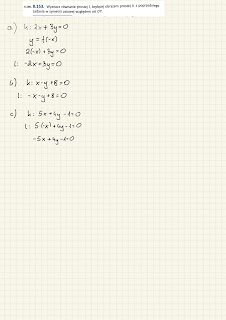 8.153. Wyznacz równanie prostej l, będącej obrazem prostej k z poprzedniego
zadania w symetrii osiowej względem osi OY.
a) k: 2x + 3y = 0
y = f(-x)
2(-x) + 3y = 0
l: -2x + 3y = 0
b) k: x - y + 8 = 0
l: -x - y + 8 = 0
c) k: 5x + 4y - 1 = 0
l: 5(-x) + 4y - 1 = 0
-5x + 4y - 1 = 0